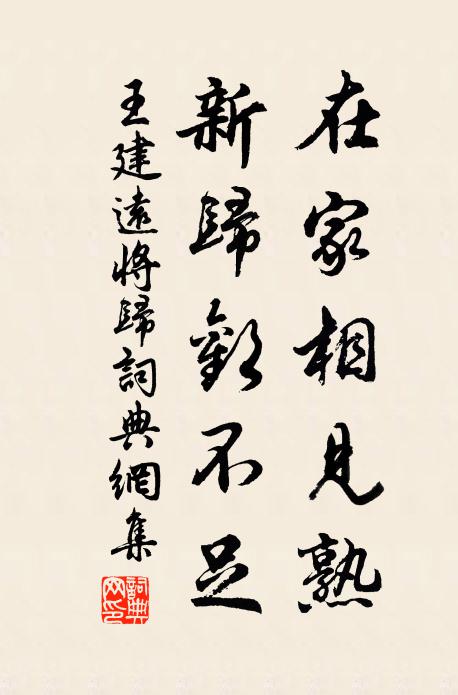 在家相見熟
新歸歡不足
王建遠將歸詞典網集
詞典網印